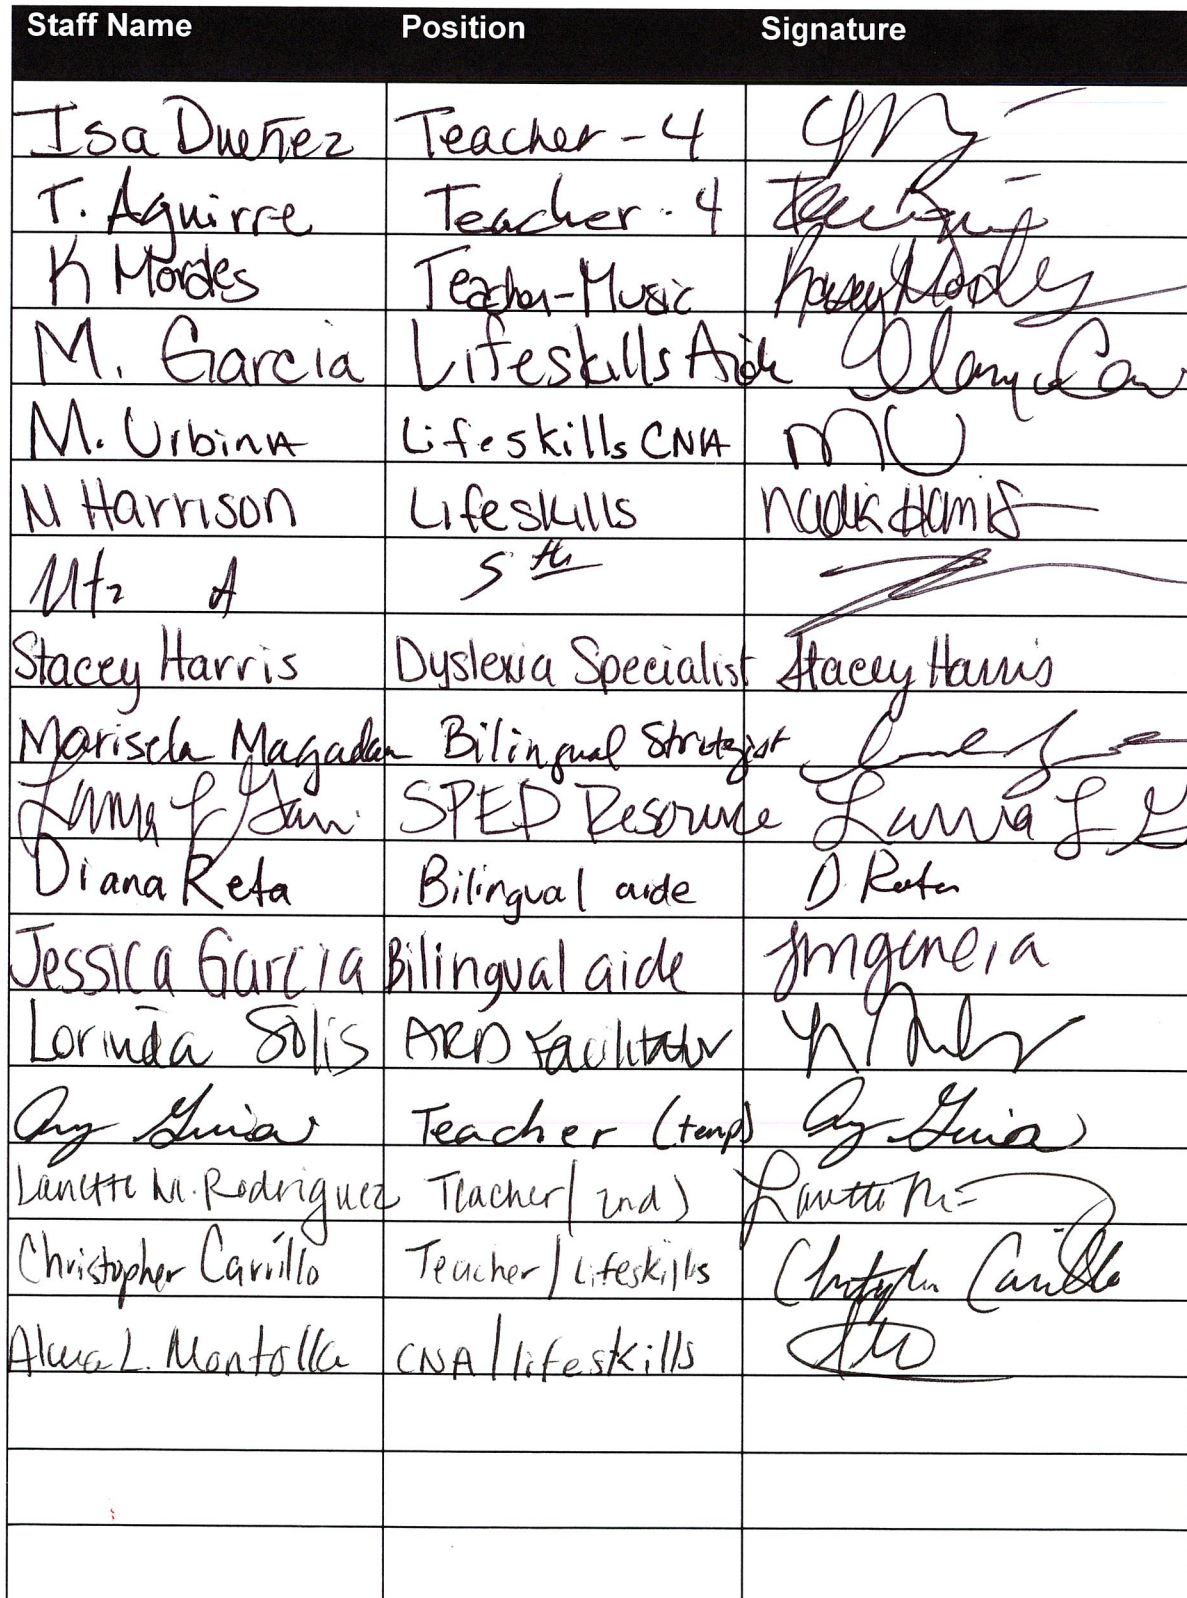 Staff Name Position Signature
Isa Dueñez Teacher - 4
T. Aguirre Teacher - 4
K Morales Teacher-Music Kasey Morales
M. Garcia Lifeskills Aide
M. Urbina Lifeskills CNA MU
N Harrison Lifeskills
5th
Stacey Harris Dyslexia Specialist Stacey Harris
Marisela Magadan Bilingual Strategist
SPED Resource
Diana Reta Bilingual aide D. Reta
Jessica Garcia Bilingual aide jmgarcia
Lorinda Solis ARD Facilitator
Teacher (temp)
Lanette M. Rodriguez Teacher (2nd) Lanette M
Christopher Carrillo Teacher / Lifeskills Christopher Carrillo
Alma L. Montolla CNA / lifeskills